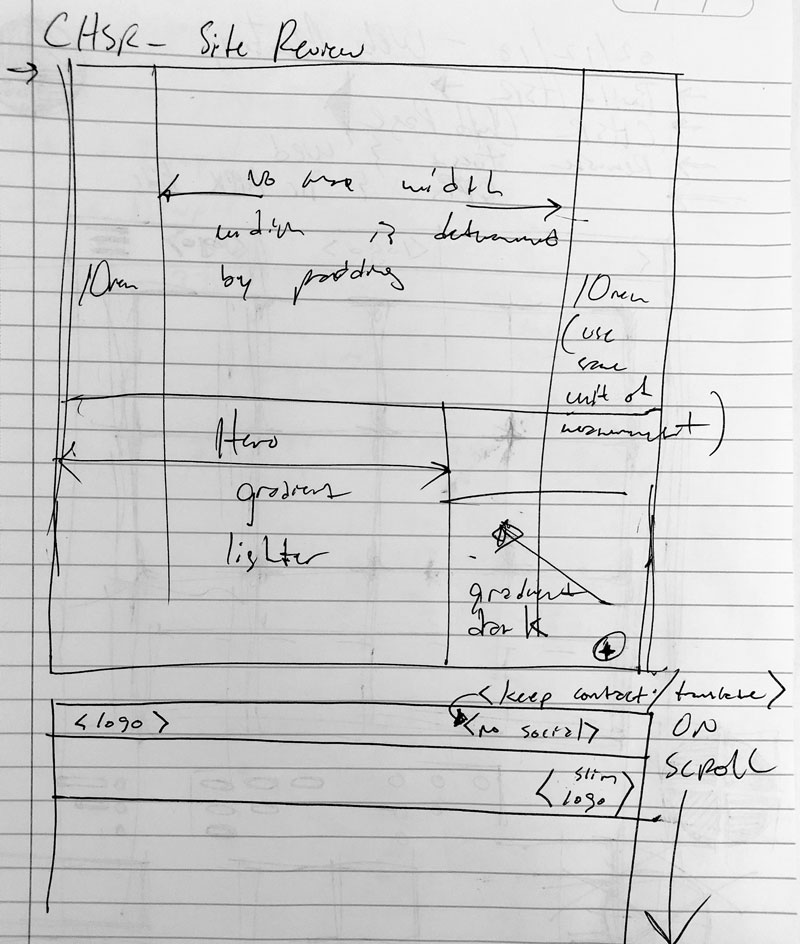 CHSR - Site Review
No max width
width is determined
by padding
10rem
10rem
(use
same
unit of
measurement)
Hero
gradient
lighter
gradient
dark
<keep contact/translate>
<logo>
<no social>
ON
SCROLL
<slim
logo>